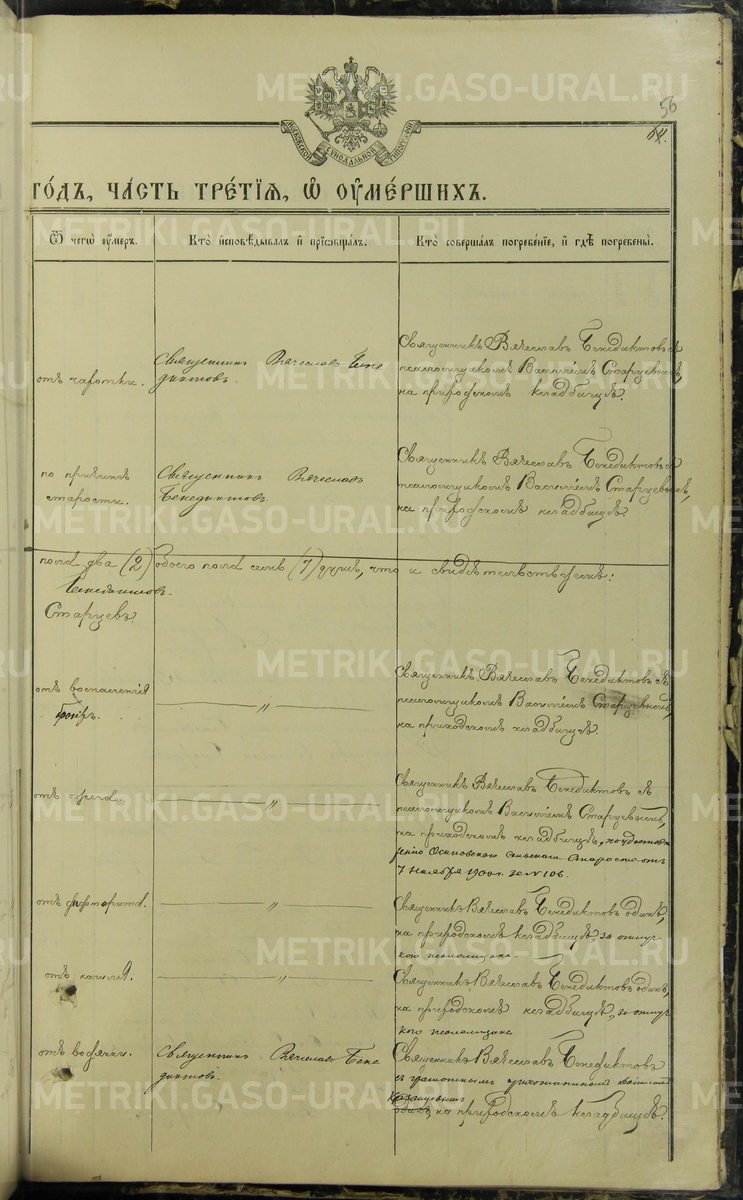 METRIKI.GASO-URAL.RU
56
МОСКОВСКОЙ СѴНОДАЛЬНОЙ ТИПОГРАФІИ
ГО́ДЪ, ЧА́СТЬ ТРЕ́ТІѦ, Ѡ҆ ОУ҆МЕ́РШИХЪ.
Ѿ чегѡ̀ оу҆́меръ.
Кто̀ и҆сповѣ́дывалъ и҆ прїѡбща́лъ.
Кто̀ соверша́лъ погребе́нїе, и҆ гдѣ̀ погребены̀.
отъ чахотки.
Священникъ Вячеславъ Бене
диктовъ.
Священникъ Вячеславъ Бенедиктовъ съ
псаломщикомъ Василіемъ Старцевымъ,
на приходскомъ кладбищѣ.
по причинѣ
старости.
Священникъ Вячеславъ
Бенедиктовъ.
Священникъ Вячеславъ Бенедиктовъ съ
псаломщикомъ Василіемъ Старцевымъ,
на приходскомъ кладбищѣ.
пола два (2) обоего пола семь (7) душъ, что и свидѣтельствуемъ:
Бенедиктовъ.
Старцевъ
отъ воспаленія
Священникъ Вячеславъ Бенедиктовъ съ
псаломщикомъ Василіемъ Старцевымъ,
на приходскомъ кладбищѣ.
отъ ожега.
Священникъ Вячеславъ Бенедиктовъ съ
псаломщикомъ Василіемъ Старцевымъ,
на приходскомъ кладбищѣ,
Осиповскаго Сельскаго Старосты отъ
7 Ноября 1900 г. за № 106.
отъ дифтерита.
Священникъ Вячеславъ Бенедиктовъ одинъ,
на приходскомъ кладбищѣ, за отлуч
кою псаломщика.
отъ кашля.
Священникъ Вячеславъ Бенедиктовъ одинъ,
на приходскомъ кладбищѣ, за отлуч
кою псаломщика.
отъ водянки.
Священникъ Вячеславъ Бене
диктовъ.
Священникъ Вячеславъ Бенедиктовъ
съ грамотнымъ прихожаниномъ
одинъ, на приходскомъ кладбищѣ.